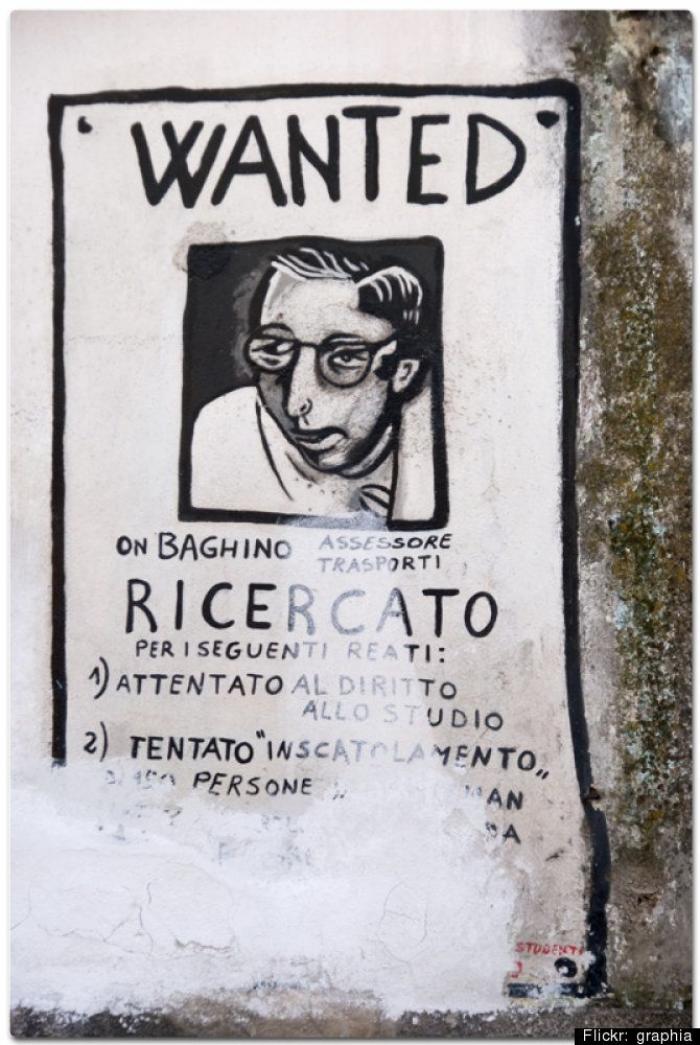 WANTED
ON BAGHINO ASSESSORE
TRASPORTI
RICERCATO
PER I SEGUENTI REATI:
1) ATTENTATO AL DIRITTO
ALLO STUDIO
2) TENTATO "INSCATOLAMENTO„
PERSONE
STUDENTI
Flickr: graphia